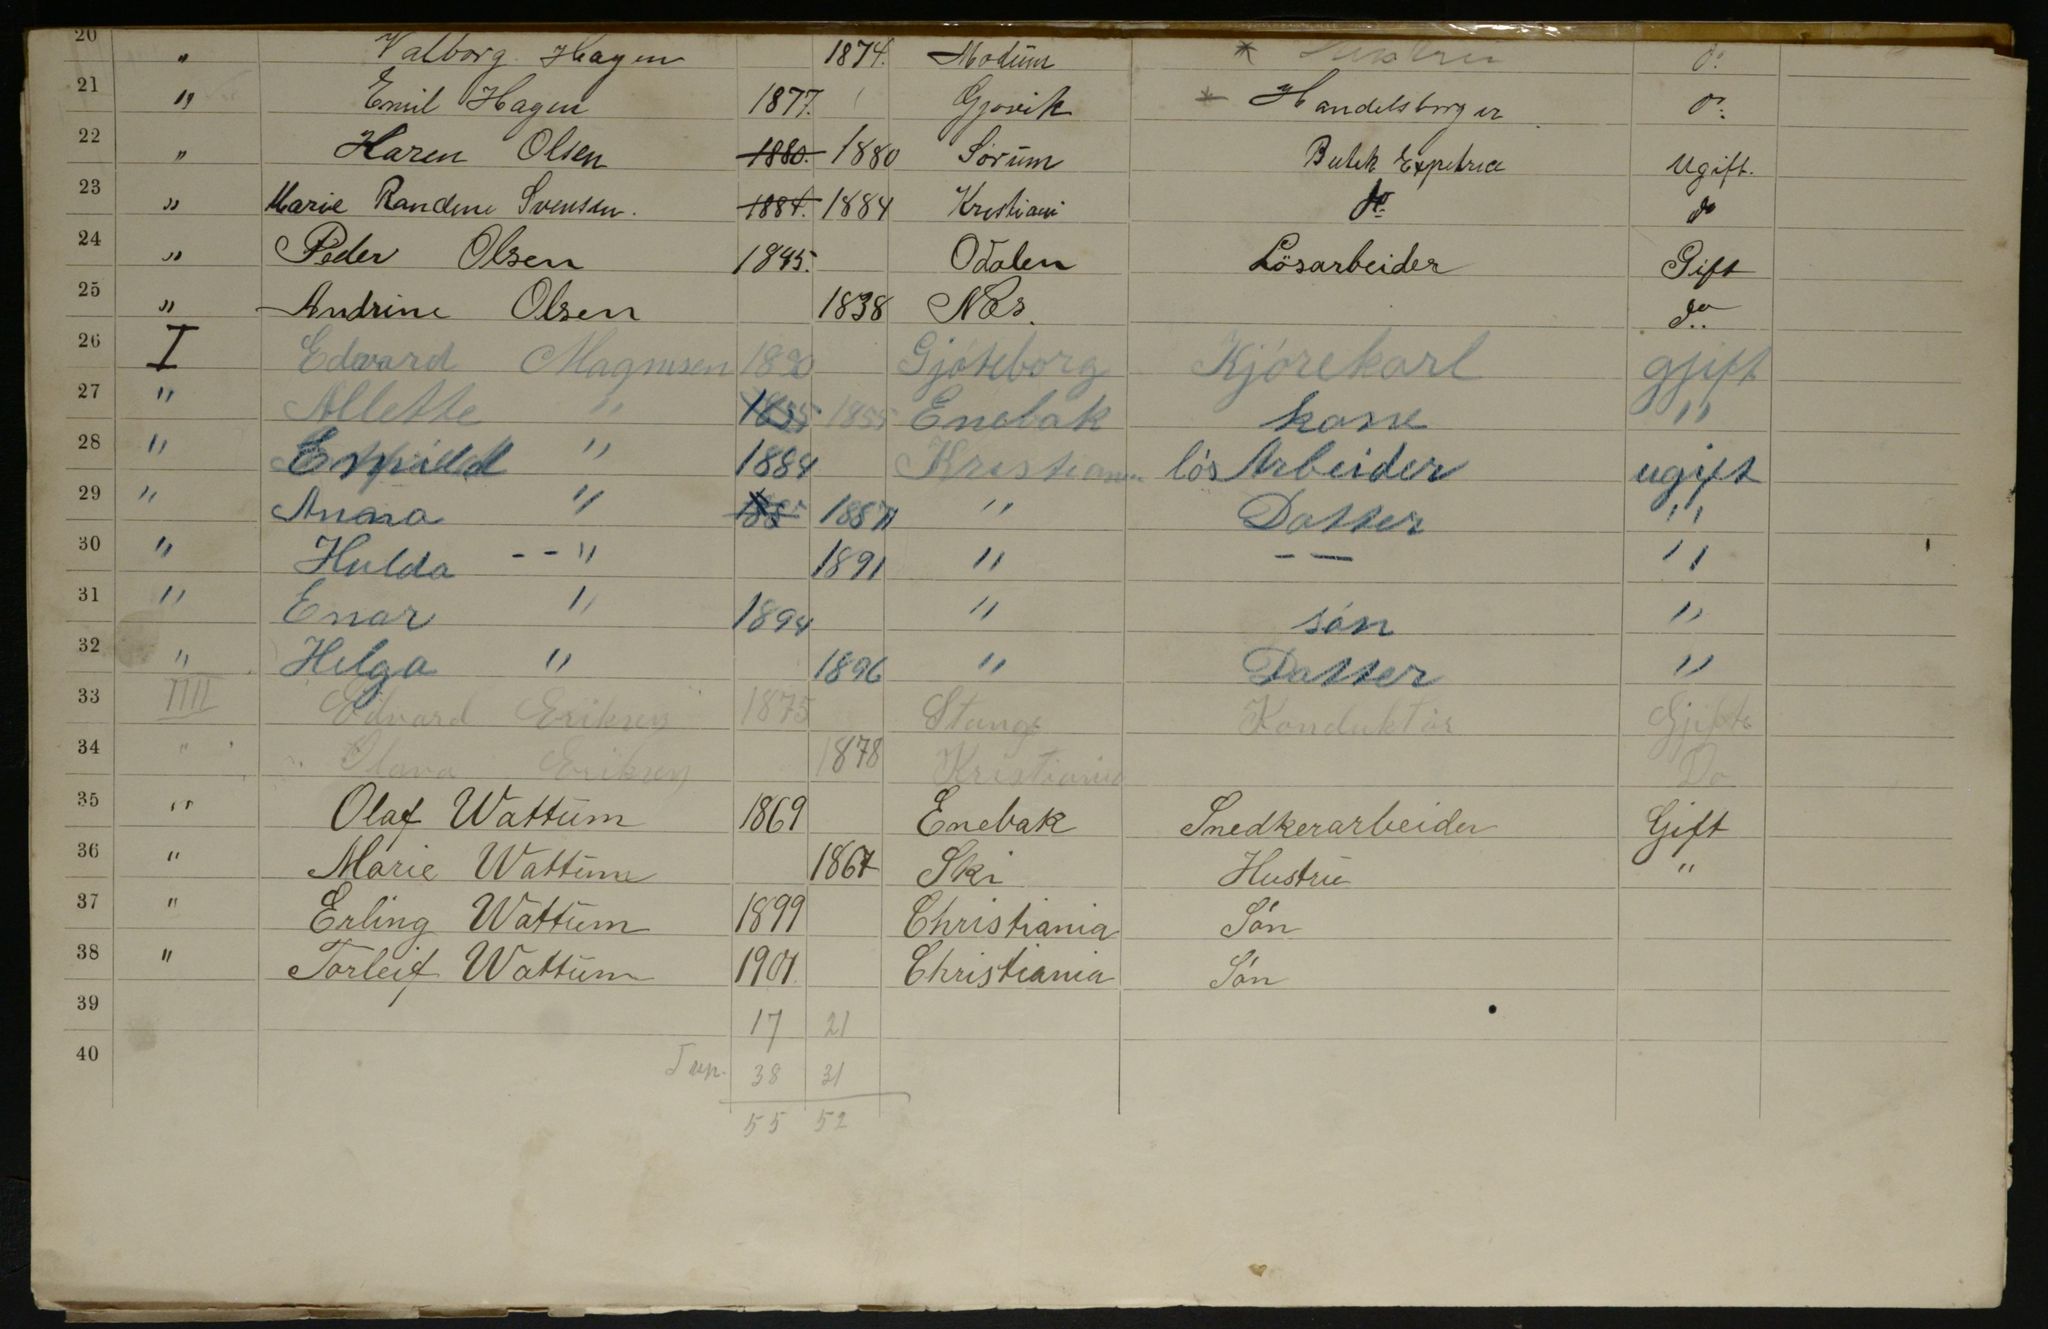 20 " Valborg Hagen 1874. Modum * Hustru do
21 " Emil Hagen 1877. Gjøvik * Handelsborger do
22 " Karen Olsen 1880. 1880 Sørum Butik Expetrice Ugift.
23 " Marie Randine Svensen. 1884. 1884 Kristiani do do
24 " Peder Olsen 1845. Odalen Lösarbeider Gift
25 " Andrine Olsen 1838 Næs. do
26 I Edward Magnusen Gjöteborg Kjörekarl gjift
27 " Allette " 1855 1855 Enebak kone "
28 " " 1884 Kristiania lös Arbeider ugift
29 " Anna " 1887 " Datter "
30 " Hulda -- " 1891 " -- "
31 " Enar " 1894 " sön "
32 " Helga " 1896 " Datter "
33 IIII Edvard Eriksen 1875 Stange Konduktör Gjift
34 " Olava Eriksen 1878 Kristiania Do
35 " Olaf Wattum 1869 Enebak Snedkerarbeider Gift
36 " Marie Wattum 1867 Ski Hustru "
37 " Erling Wattum 1899 Christiania Sön
38 " Torleif Wattum 1901 Christiania Sön
39 17 21
40 38 31
55 52